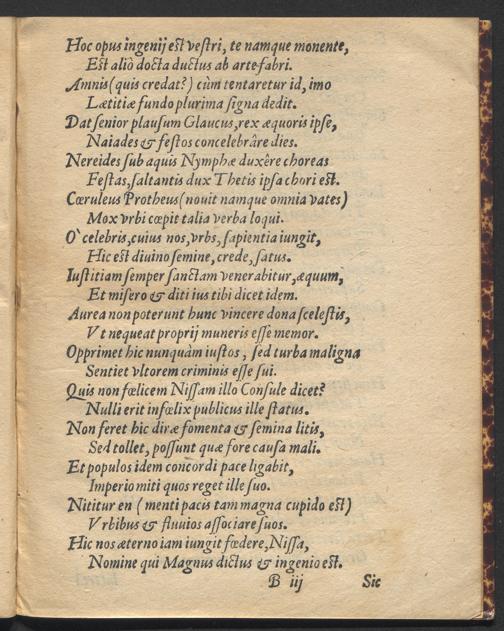 Hoc opus ingenij est vestri, te namque monente,
Est aliò docta ductus ab arte fabri.
Amnis (quis credat?) cùm tentaretur id, imo
Lætitiæ fundo plurima signa dedit.
Dat senior plausum Glaucus, rex æquoris ipse,
Naiades & festos concelebrâre dies.
Nereides sub aquis Nymphæ duxêre choreas
Festas, saltantis dux Thetis ipsa chori est.
Cœruleus Protheus (nouit namque omnia vates)
Mox vrbi cœpit talia verba loqui.
O` celebris, cuius nos, vrbs, sapientia iungit,
Hic est diuino semine, crede, satus.
Iustitiam semper sanctam venerabitur, æquum,
Et misero & diti ius tibi dicet idem.
Aurea non poterunt hunc vincere dona scelestis,
Vt nequeat proprij muneris esse memor.
Opprimet hic nunquàm iustos, sed turba maligna
Sentiet vltorem criminis esse sui.
Quis non fœlicem Nissam illo Consule dicet?
Nulli erit infœlix publicus ille status.
Non feret hic diræ fomenta & semina litis,
Sed tollet, possunt quæ fore causa mali.
Et populos idem concordi pace ligabit,
Imperio miti quos reget ille suo.
Nititur en (menti pacis tam magna cupido est)
Vrbibus & fluuios associare suos.
Hic nos æterno iam iungit fœdere, Nissa,
Nomine qui Magnus dictus & ingenio est.
B iij Sic